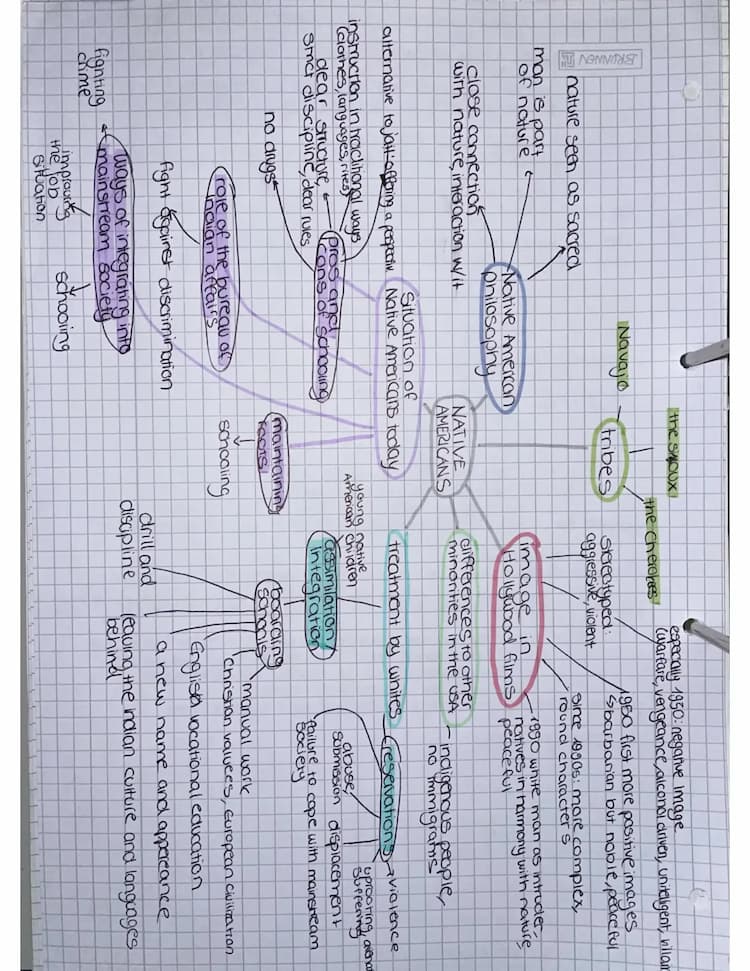 BRUNNEN
NATIVE
AMERICANS
tribes
Navajo
the Sioux
the Cherokees
Native American
philosophy
nature seen as sacred
man is part
of nature
close connection
with nature, interaction w/it
image in
Hollywood films
stereotyped:
aggressive, violent
especially 1950: negative image
(warfare, vengeance, alcohol driven, unintelligent, villain
1950 first more positive images
barbarian but noble, peaceful
since 1990s: more complex,
round characters
1990 white man as intruder,
natives in harmony with nature,
peaceful
differences to other
minorities in the USA
- indigenous people,
no immigrants
treatment by whites
reservations
violence
uprooting,
suffering
abuse,
submission displacement
failure to cope with mainstream
society
assimilation/
integration
young native
American children
boarding
schools
manual work
Christian values, European civilization
English vocational education
a new name and appereance
leaving the indian culture and languages
behind
drill and
discipline
Situation of
Native Americans today
pros and
cons of schooling
alternative to jail-offering a perspective
instruction in traditional ways
(clothes, languages, rites)
clear structure,
strict discipline, clear rules
no drugs
role of the bureau of
indian affairs
fight against discrimination
ways of integrating into
mainstream society
fighting
crime
improving
the job
situation
schooling
maintaining
schooling